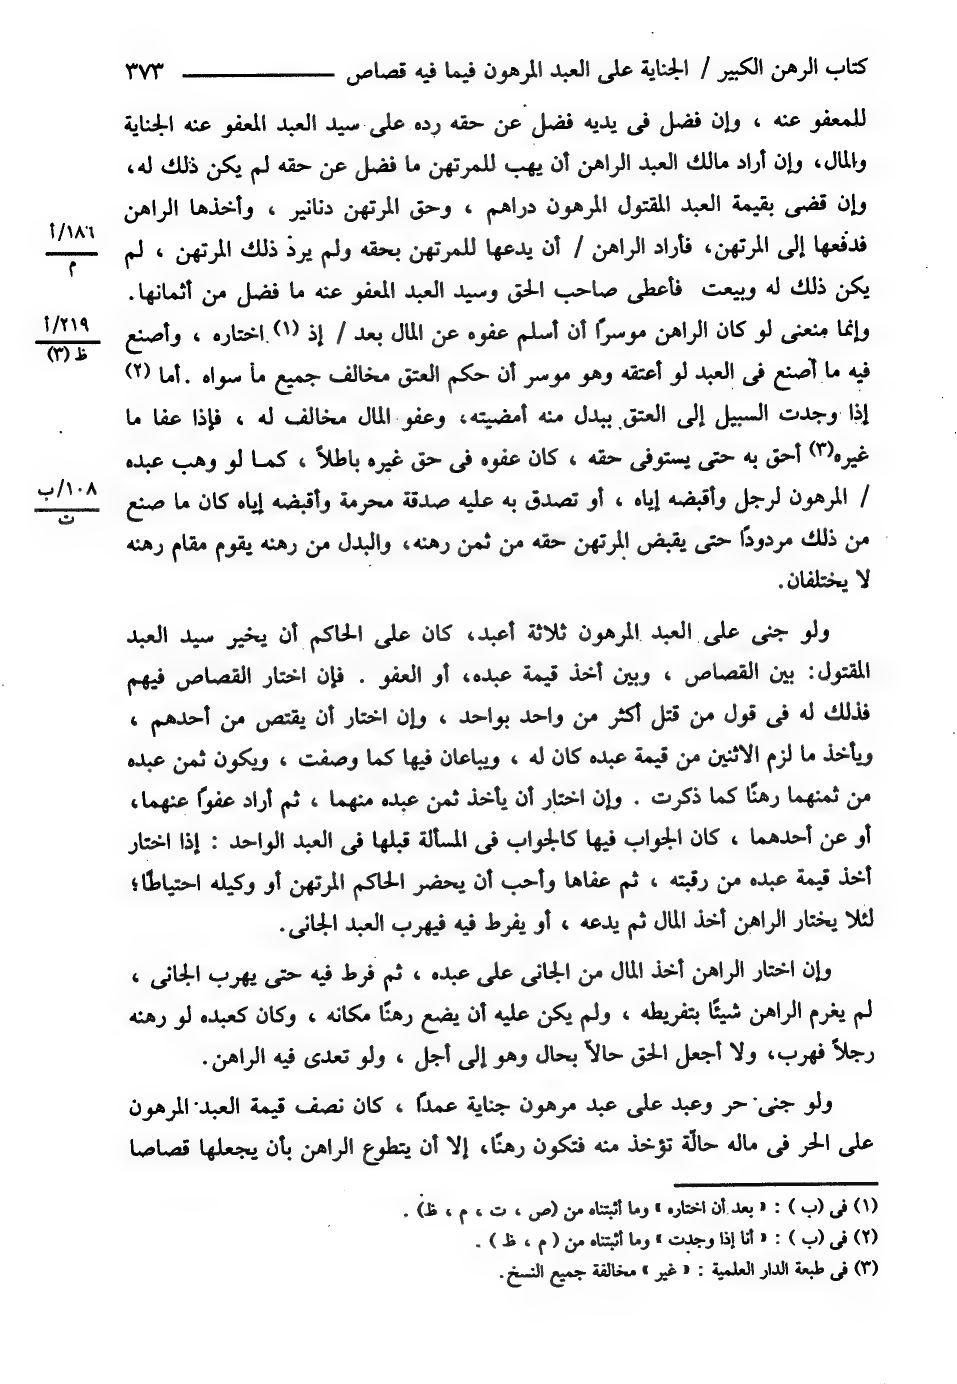 كتاب الرهن الكبير / الجناية على العبد المرهون فيما فيه قصاص ــــــــــــ ٣٧٣
للمعفو عنه ، وإن فضل فى يديه فضل عن حقه رده على سيد العبد المعفو عنه الجناية
والمال، وإن أراد مالك العبد الراهن أن يهب للمرتهن ما فضل عن حقه لم يكن ذلك له،
وإن قضى بقيمة العبد المقتول المرهون دراهم ، وحق المرتهن دنانير ، وأخذها الراهن
فدفعها إلى المرتهن، فأراد الراهن / أن يدعها للمرتهن بحقه ولم يرد ذلك المرتهن ، لم
١٨٦/أ
م
يكن ذلك له وبيعت فأعطى صاحب الحق وسيد العبد المعفو عنه ما فضل من أثمانها.
وإنما منعنى لو كان الراهن موسرًا أن أسلم عفوه عن المال بعد / إذ (١) اختاره ، وأصنع
٢١٩/أ
ظ (٣)
فيه ما أصنع فى العبد لو أعتقه وهو موسر أن حكم العتق مخالف جميع ما سواه .أما (٢)
إذا وجدت السبيل إلى العتق ببدل منه أمضيته، وعفو المال مخالف له ، فإذا عفا ما
غيره(٣) أحق به حتى يستوفى حقه ، كان عفوه فى حق غيره باطلاً ، كما لو وهب عبده
/ المرهون لرجل وأقبضه إياه ، أو تصدق به عليه صدقة محرمة وأقبضه إياه كان ما صنع
١٠٨/ب
ت
من ذلك مردودًا حتى يقبض المرتهن حقه من ثمن رهنه، والبدل من رهنه يقوم مقام رهنه
لا يختلفان.
ولو جنى على العبد المرهون ثلاثة أعبد، كان على الحاكم أن يخير سيد العبد
المقتول: بين القصاص ، وبين أخذ قيمة عبده، أو العفو . فإن اختار القصاص فيهم
فذلك له فى قول من قتل أكثر من واحد بواحد ، وإن اختار أن يقتص من أحدهم ،
ويأخذ ما لزم الاثنين من قيمة عبده كان له ، ويباعان فيها كما وصفت ، ويكون ثمن عبده
من ثمنهما رهنًا كما ذكرت . وإن اختار أن يأخذ ثمن عبده منهما ، ثم أراد عفوًا عنهما،
أو عن أحدهما ، كان الجواب فيها كالجواب فى المسألة قبلها فى العبد الواحد : إذا اختار
أخذ قيمة عبده من رقبته ، ثم عفاها وأحب أن يحضر الحاكم المرتهن أو وكيله احتياطًا؛
لئلا يختار الراهن أخذ المال ثم يدعه ، أو يفرط فيه فيهرب العبد الجانى.
وإن اختار الراهن أخذ المال من الجانى على عبده ، ثم فرط فيه حتى يهرب الجانى ،
لم يغرم الراهن شيئًا بتفريطه ، ولم يكن عليه أن يضع رهنًا مكانه ، وكان كعبده لو رهنه
رجلاً فهرب، ولا أجعل الحق حالاً بحال وهو إلى أجل ، ولو تعدى فيه الراهن.
ولو جنى حر وعبد على عبد مرهون جناية عمدًا ، كان نصف قيمة العبد المرهون
على الحر فى ماله حالّة تؤخذ منه فتكون رهنًا، إلا أن يتطوع الراهن بأن يجعلها قصاصا
(١) فى (ب ) : « بعد أن اختاره » وما أثبتناه من (ص ، ت ، م ، ظ) .
(٢) فى (ب ) : « أنا إذا وجدت » وما أثبتناه من ( م ، ظ ) .
(٣) فى طبعة الدار العلمية : « غير » مخالفة جميع النسخ.